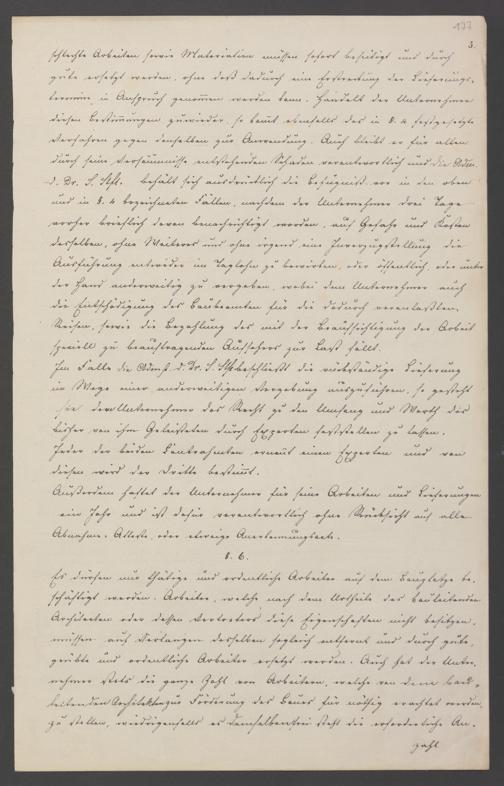 177
3.
schlechte Arbeiten sowie Materialien müssen sofort beseitigt und durch
gute ersetzt werden, ohne daß dadurch eine Erstreckung der Lieferungs-
termine in Anspruch genommen werden kann. Handelt der Unternehmer
diesen Bestimmungen zuwieder, so kommt ebenfalls das in §. 4 festgesetzte
Verfahren gegen denselben zur Anwendung. Auch bleibt er für allen
durch seine Versäumnisse entstehenden Schaden verantwortlich und die Adm.
d. Dr. S. Stft. behält sich ausdrücklich die Befugniß vor in den oben
und in §. 4 bezeichneten Fällen, nachdem der Unternehmer drei Tage
vorher brieflich davon benachrichtigt worden, auf Gefahr und Kosten
desselben, ohne Weiteres und ohne irgend eine Inverzugstellung die
Ausführung entweder im Taglohn zu bewirken, oder öffentlich, oder unter
der Hand anderweitig zu vergeben, wobei dem Unternehmer auch
die Entschädigung des Baubeamten für die dadurch veranlaßten
Reisen, sowie die Bezahlung des mit der Beaufsichtigung der Arbeit
speciell zu beauftragenden Aufsehers zur Last fällt.
Im Falle die Adm. d. Dr. S. Stft. beschließt die rückständige Lieferung
im Wege einer anderweitigen Vergebung auszuführen, so gesteht
sie dem Unternehmer das Recht zu den Umfang und Werth des
bisher von ihm Geleisteten durch Experten feststellen zu lassen.
Jeder der beiden Contrahenten ernennt einen Experten und von
diesen wird der Dritte bestimmt.
Außerdem haftet der Unternehmer für seine Arbeiten und Lieferungen
ein Jahr und ist dafür verantwortlich ohne Rücksicht auf alle
Abnahme-Atteste, oder etwaige Anerkennungsacte.
§. 6.
Es dürfen nur thätige und ordentliche Arbeiter auf dem Bauplatze be-
schäftigt werden. Arbeiter, welche nach dem Urtheile des bauleitenden
Architecten oder dessen Vertreters diese Eigenschaften nicht besitzen,
müssen auf Verlangen desselben sogleich entfernt und durch gute,
geübte und ordentliche Arbeiter ersetzt werden. Auch hat der Unter-
nehmer stets die ganze Zahl von Arbeitern, welche von dem bau-
leitenden Architekten zur Förderung des Baues für nöthig erachtet werden,
zu stellen, widrigenfalls es demselben frei steht die erforderliche An-
zahl